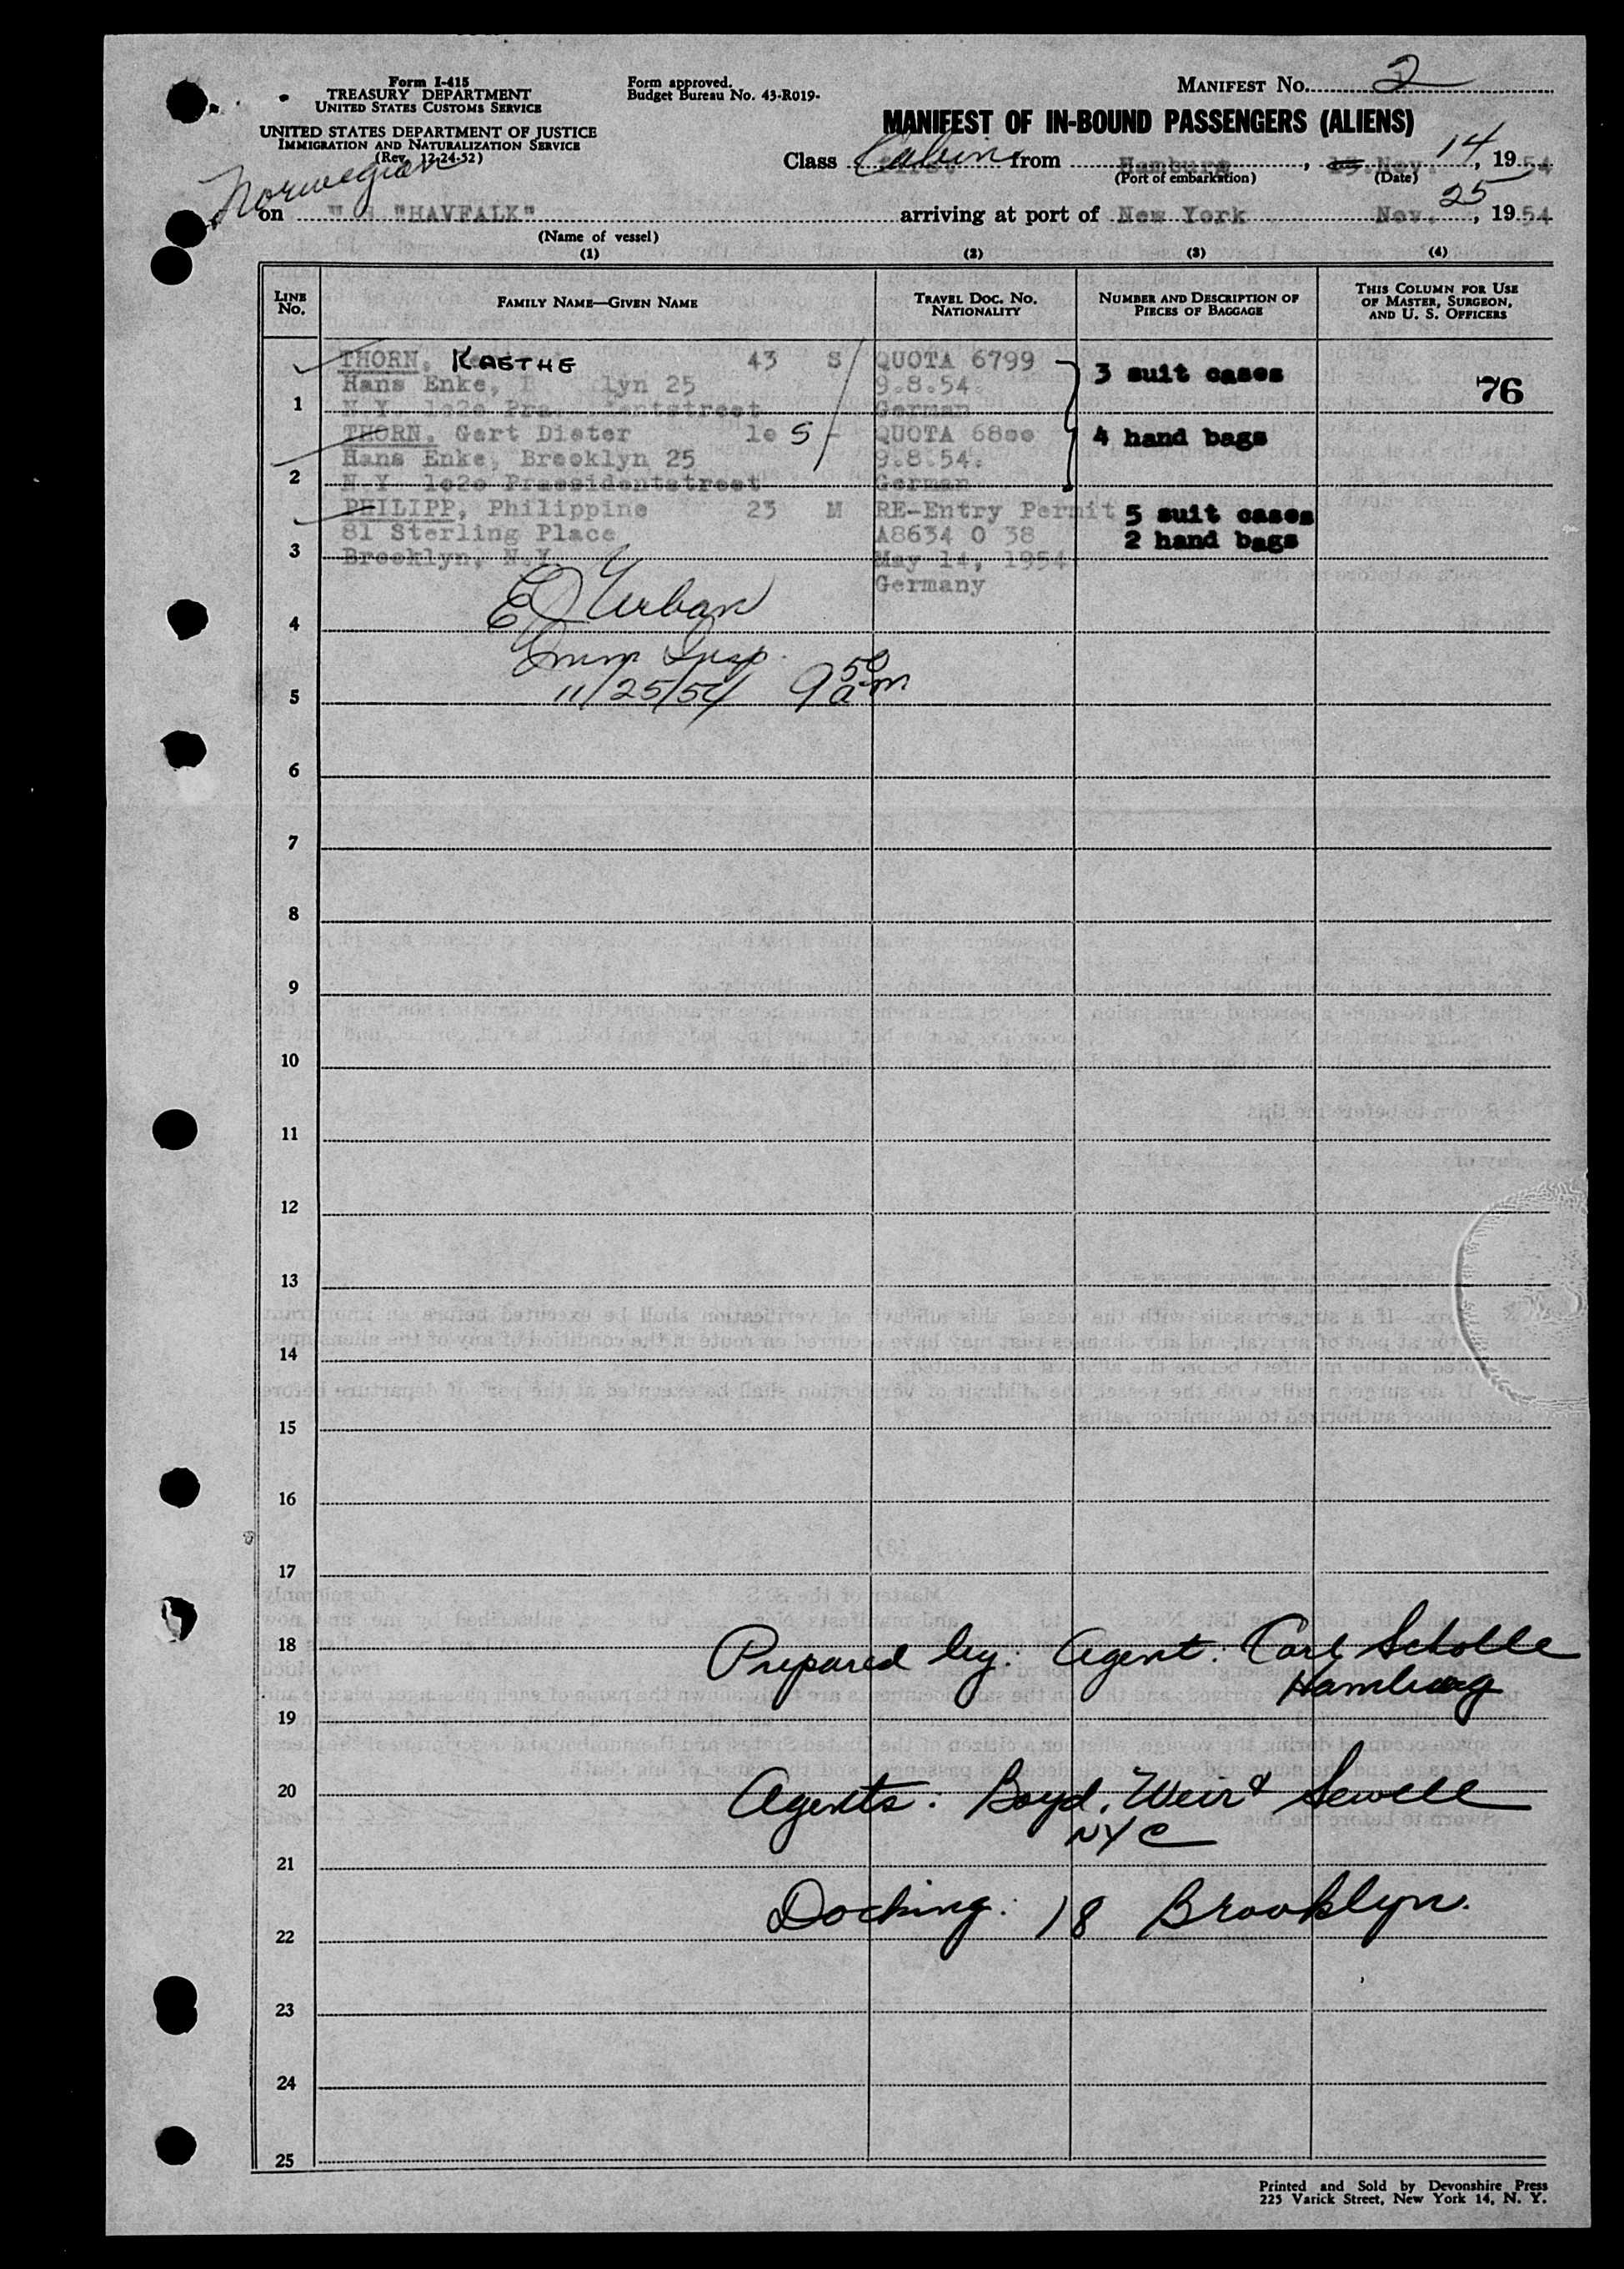 Form I-415
TREASURY DEPARTMENT
UNITED STATES CUSTOMS SERVICE
UNITED STATES DEPARTMENT OF JUSTICE
IMMIGRATION AND NATURALIZATION SERVICE
(Rev. 12-24-52)
Form approved.
Budget Bureau No. 43-R019-
MANIFEST No. 2
MANIFEST OF IN-BOUND PASSENGERS (ALIENS)
Class Cabin from Hamburg, Nov. 14, 1954
(Port of embarkation) (Date)
Norwegian
on "HAVFALK" arriving at port of New York Nov. 25, 1954
(Name of vessel)
(1) (2) (3) (4)
LINE No. FAMILY NAME—GIVEN NAME TRAVEL DOC. No. NATIONALITY NUMBER AND DESCRIPTION OF PIECES OF BAGGAGE THIS COLUMN FOR USE OF MASTER, SURGEON, AND U. S. OFFICERS
THORN, KAETHE 43 S QUOTA 6799 3 suit cases 76
Hans Enke, lyn 25 9.8.54.
1 N.Y. 1o2o entstreet German
THORN, Gert Dieter 1o S - QUOTA 68oo 4 hand bags
Hans Enke, Brooklyn 25 9.8.54.
2 N.Y. 1o2o Praesidentstreet German
PHILIPP, Philippine 23 M RE-Entry Permit 5 suit cases
81 Sterling Place A8634 0 38 2 hand bags
3 Brooklyn, N.Y. May 14, 1954
Germany
4 Urban
Imm Insp.
5 11/25/54 9 50 am
6
7
8
9
10
11
12
13
14
15
16
17
18 Prepared by: Agent: Carl Scholle
Hamburg
19
20 Agents: Boyd, Weir & Sewell
NYC
21
22 Docking: 18 Brooklyn.
23
24
25
Printed and Sold by Devonshire Press
225 Varick Street, New York 14, N. Y.